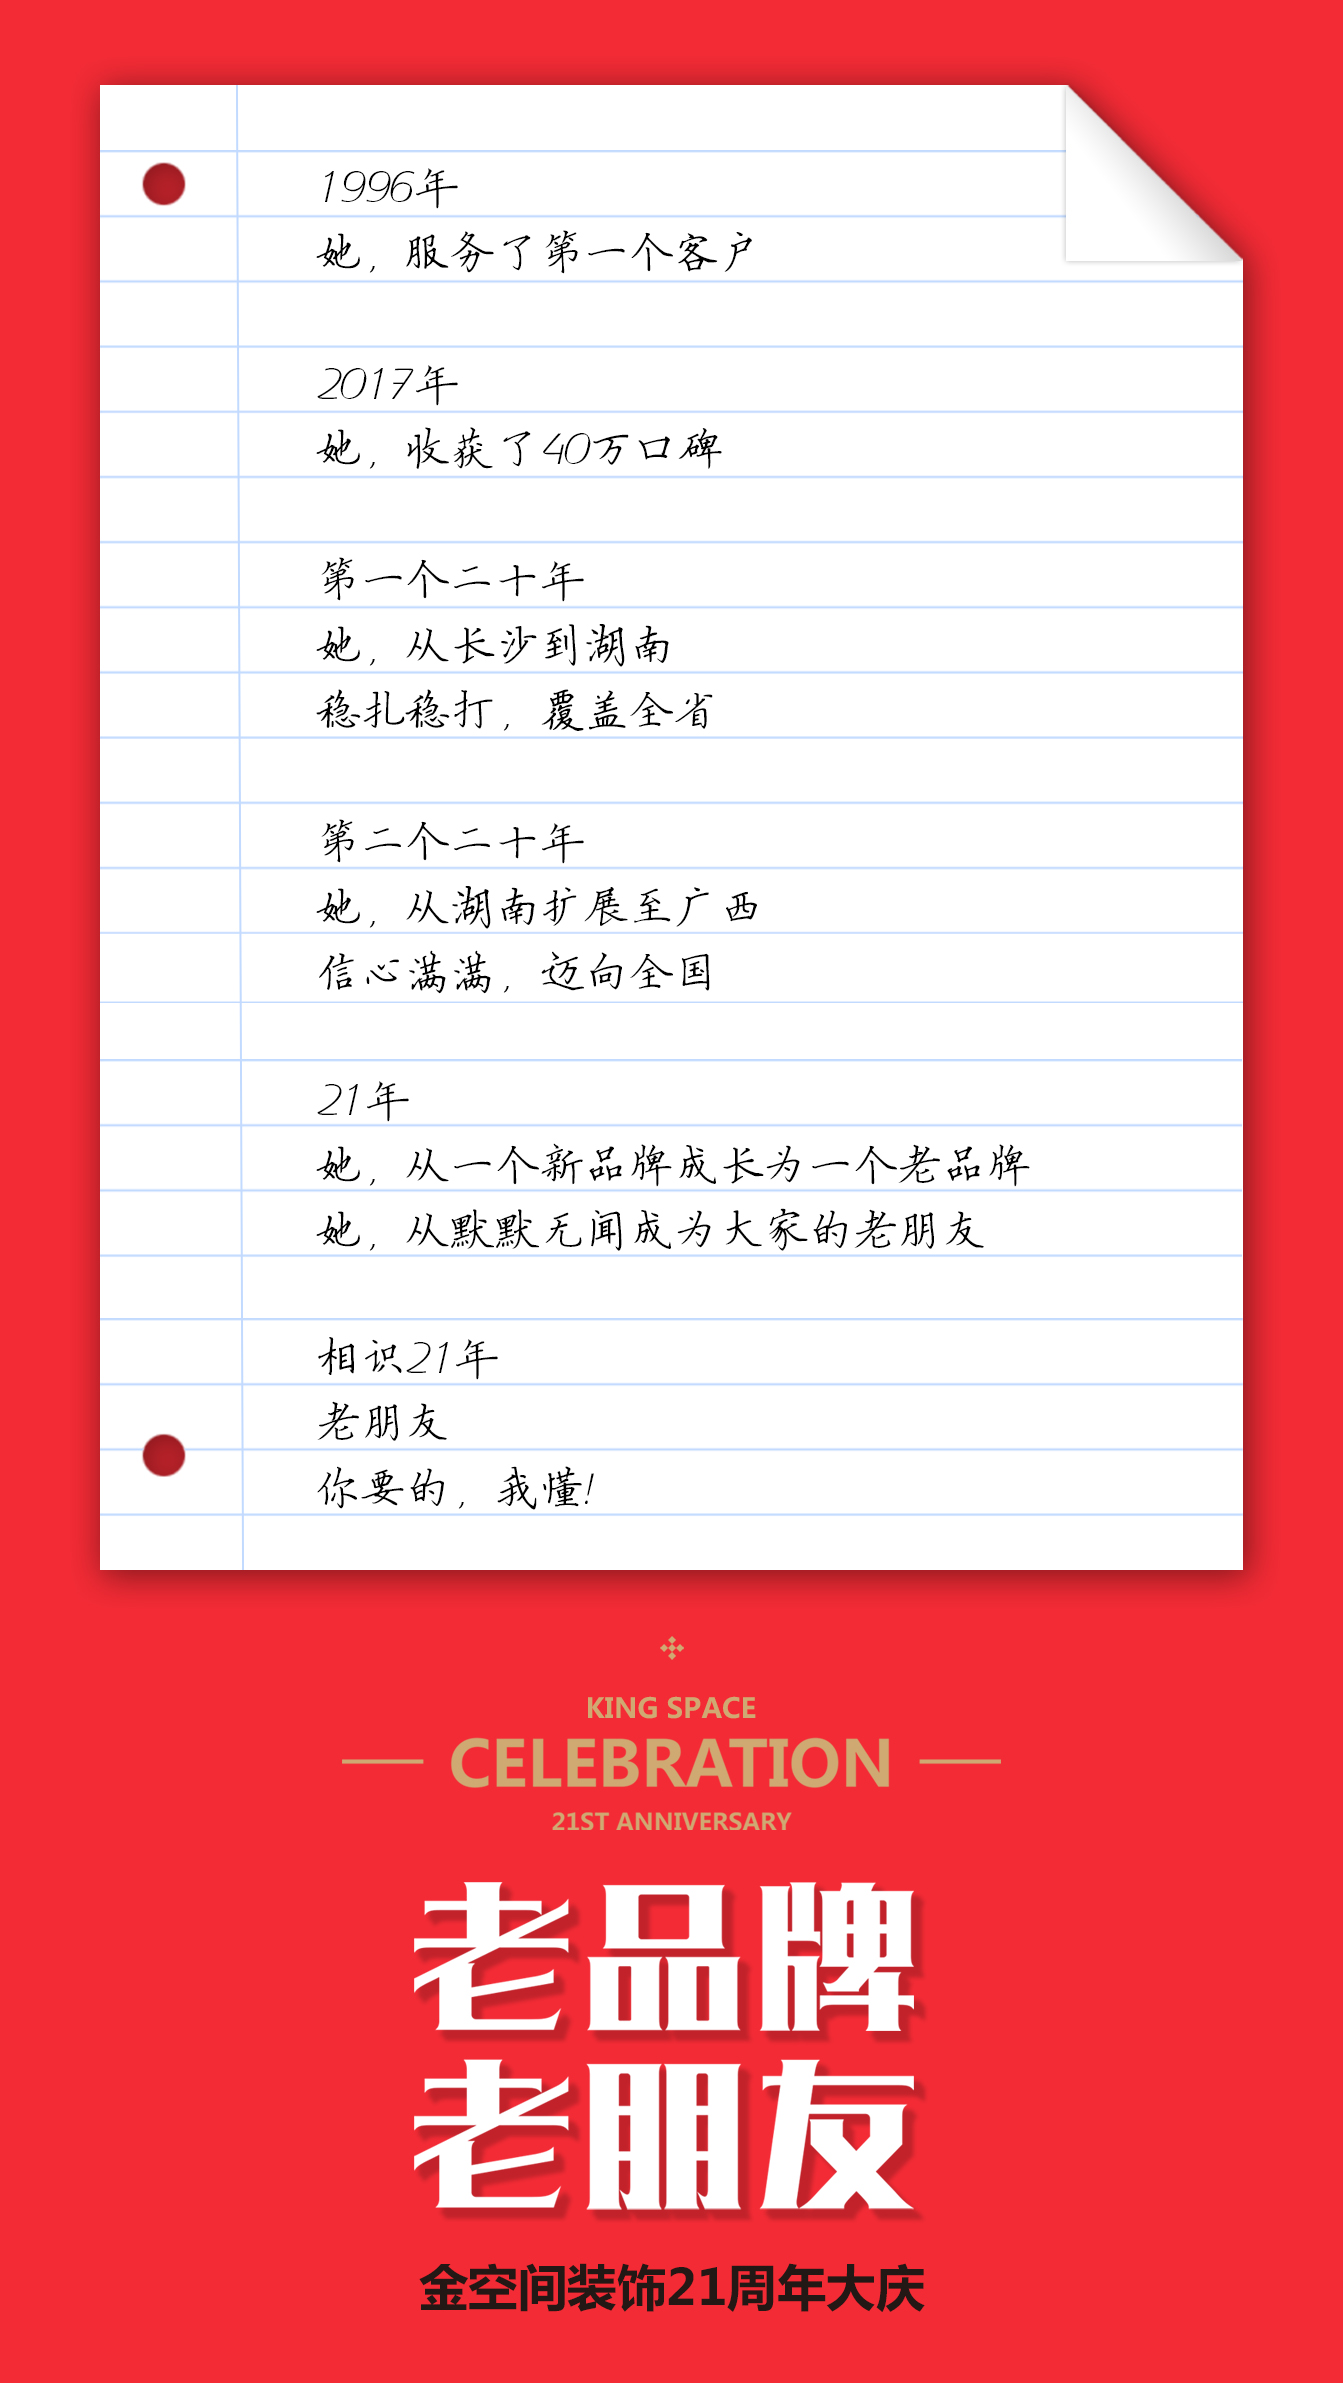 1996年
她，服务了第一个客户
2017年
她，收获了40万口碑
第一个二十年
她，从长沙到湖南
稳扎稳打，覆盖全省
第二个二十年
她，从湖南扩展至广西
信心满满，迈向全国
21年
她，从一个新品牌成长为一个老品牌
她，从默默无闻成为大家的老朋友
相识21年
老朋友
你要的，我懂!
KING SPACE
CELEBRATION
21ST ANNIVERSARY
老品牌
老朋友
金空间装饰21周年大庆